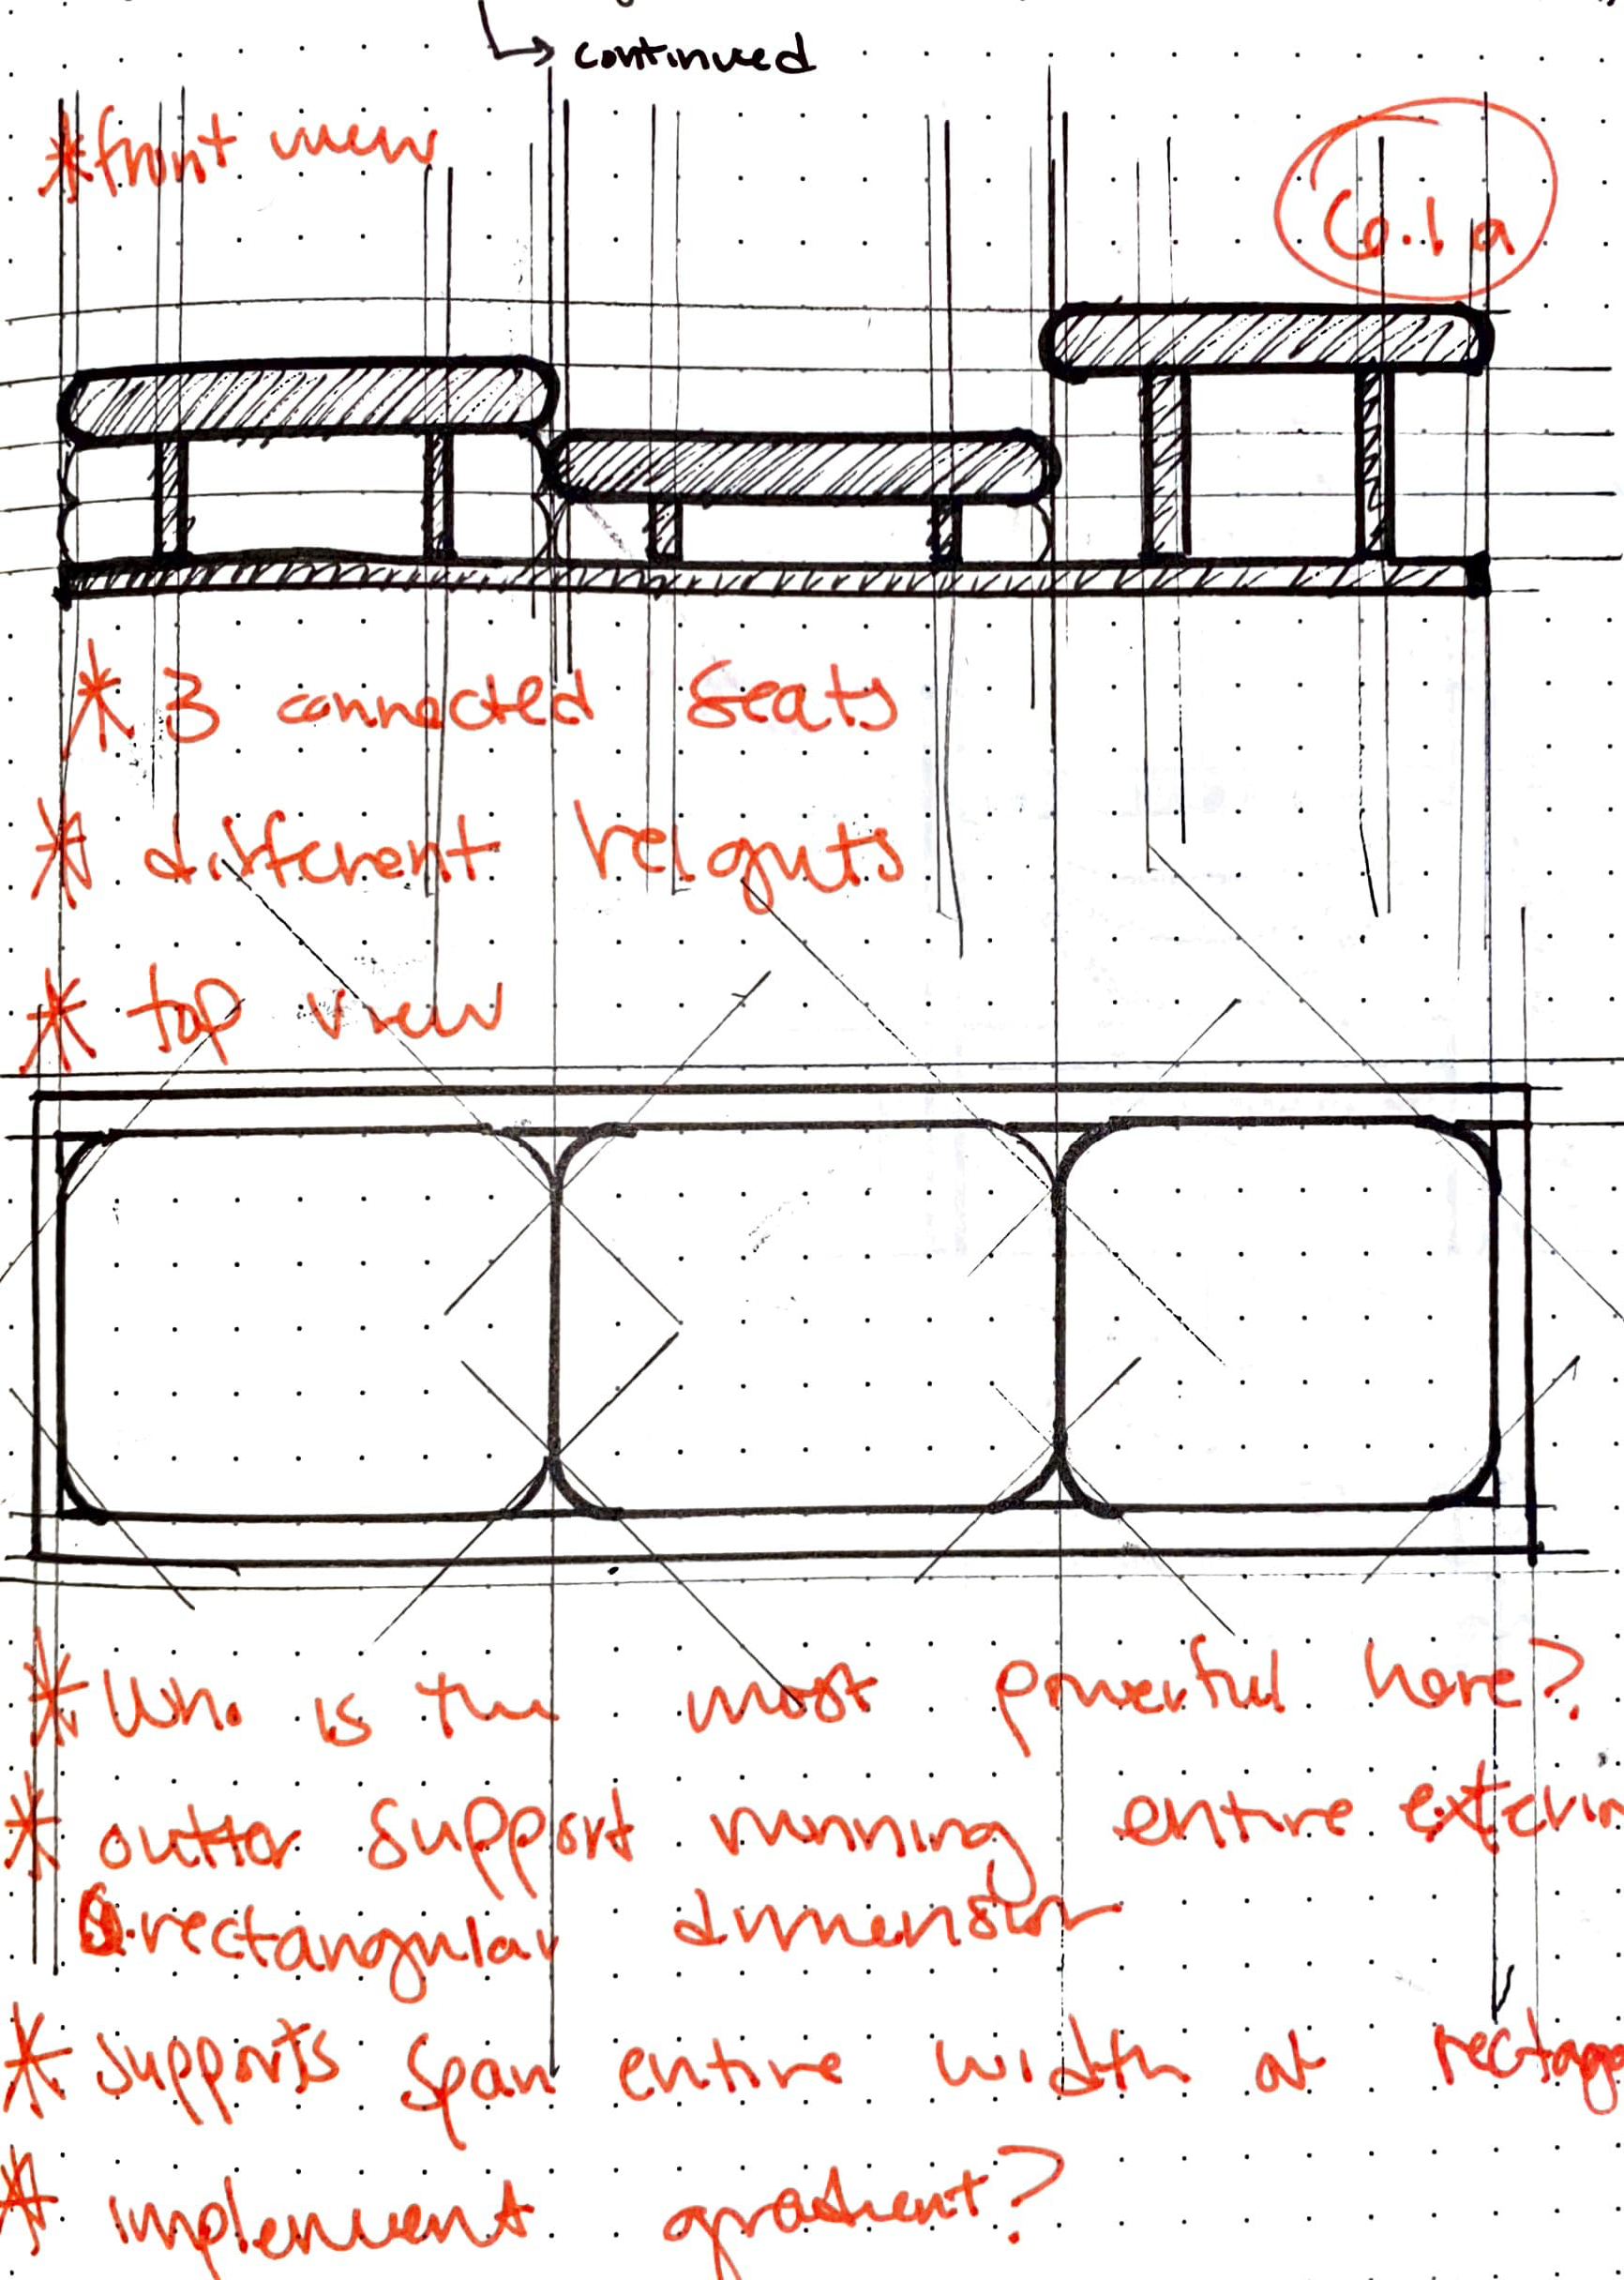 continued
*front view
6.1a
* 3 connected seats
* different heights
* top view
* Who is the most powerful here?
* outter support running entire exterior
rectangular dimension
* supports span entire width at rectage
* implement gradient?